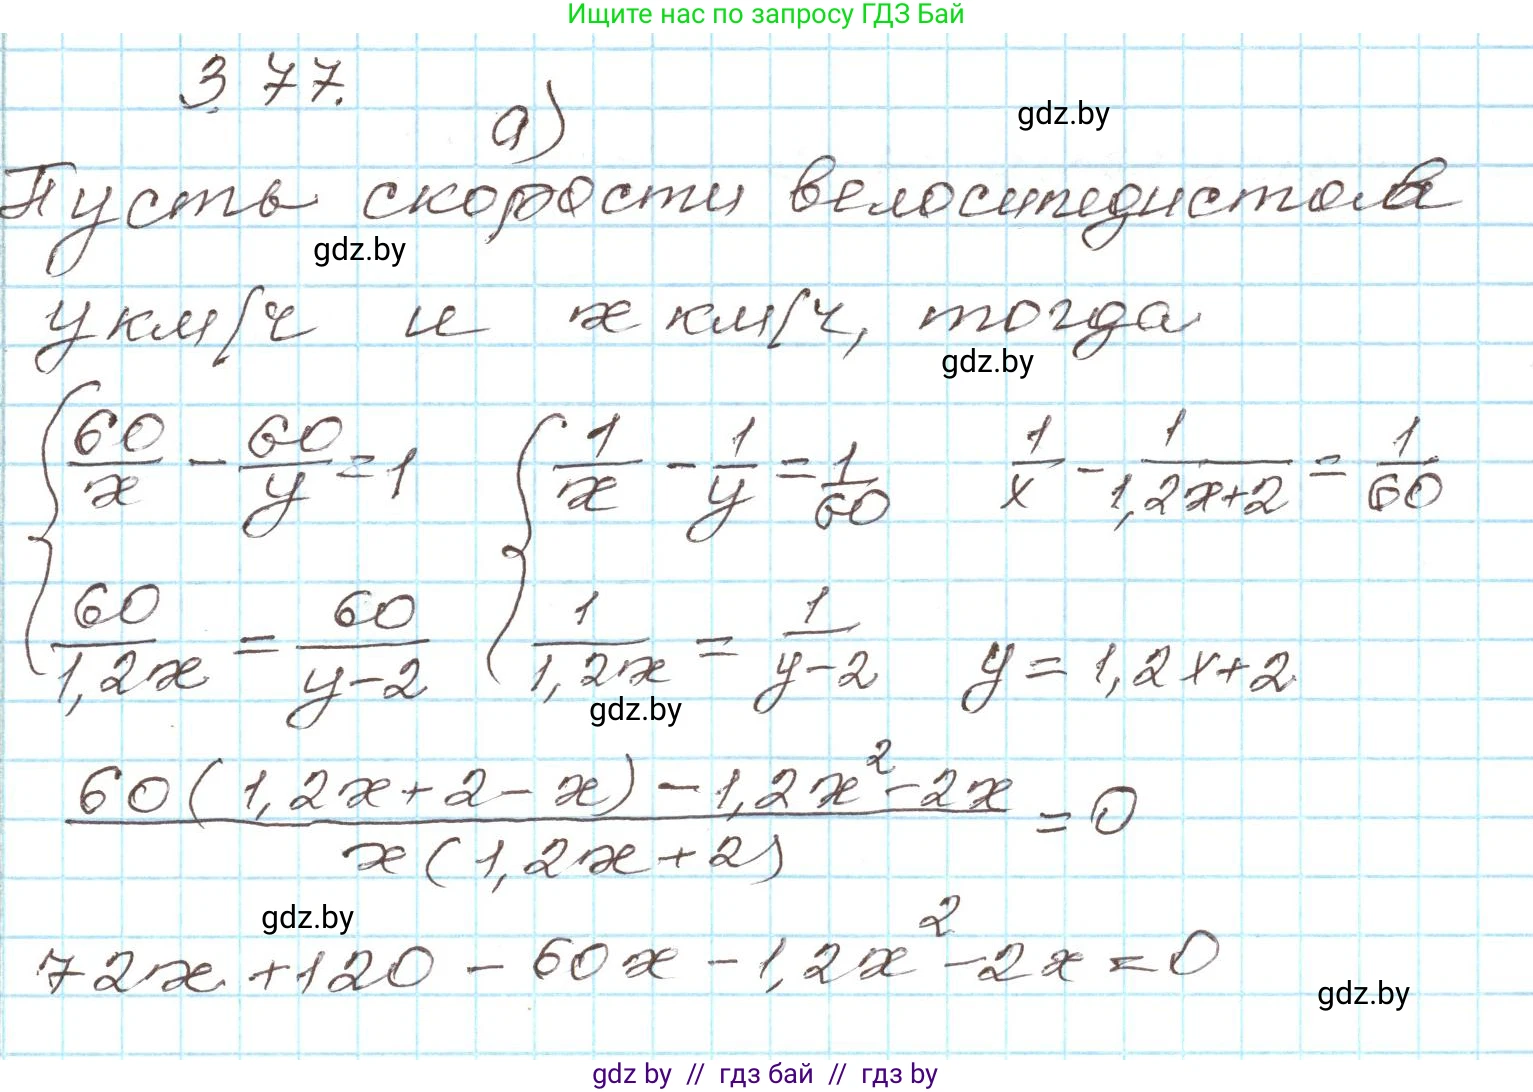 Ищите нас по запросу ГДЗ Бай
3.77.
а)
gdz.by
Пусть скорости велосипедистов
gdz.by
y км/ч и x км/ч, тогда
gdz.by
{ 60/x - 60/y = 1 { 1/x - 1/y = 1/60 1/x - 1/(1,2x+2) = 1/60
60/(1,2x) = 60/(y-2) 1/(1,2x) = 1/(y-2) y = 1,2x+2
gdz.by
(60(1,2x+2-x) - 1,2x² - 2x)/(x(1,2x+2)) = 0
gdz.by
72x + 120 - 60x - 1,2x² - 2x = 0
gdz.by
gdz by // гдз бай // гдз by